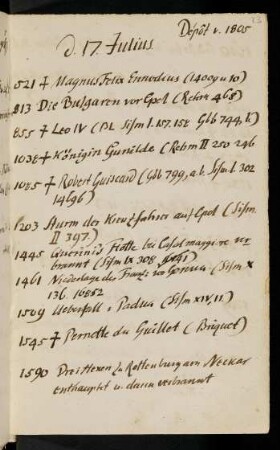 Depôt v. 1805
d. 17. Julius
521 † Magnus Felix Ennodius (1400 q 10)
813 Die Bulgaren vor Cpel (Rehm 468)
855 † Leo IV (BL Sism I. 157. 158 Gbb 744, b.)
1038 † Königin Gunilde (Rehm II 250 246
1085 † Robert Guiscard (Gbb 799, a. b. Sism I. 302
1469b)
1203 Sturm der Kreuzfahrer auf Cpel (Sism.
II 397.)
1445 Guerinis Flotte bei Casalmaggiore ver
brannt (Sism IX 108
1461 Niederlage der Franz. vor Genua (Sism X
136. 1685 2
1509 Ueberfall v. Padua (Sism XIV, 11)
1545 † Pernette du Guillet (Briquet)
1590 Drei Hexen zu Rottenburg am Neckar
enthauptet u. dann verbrannt